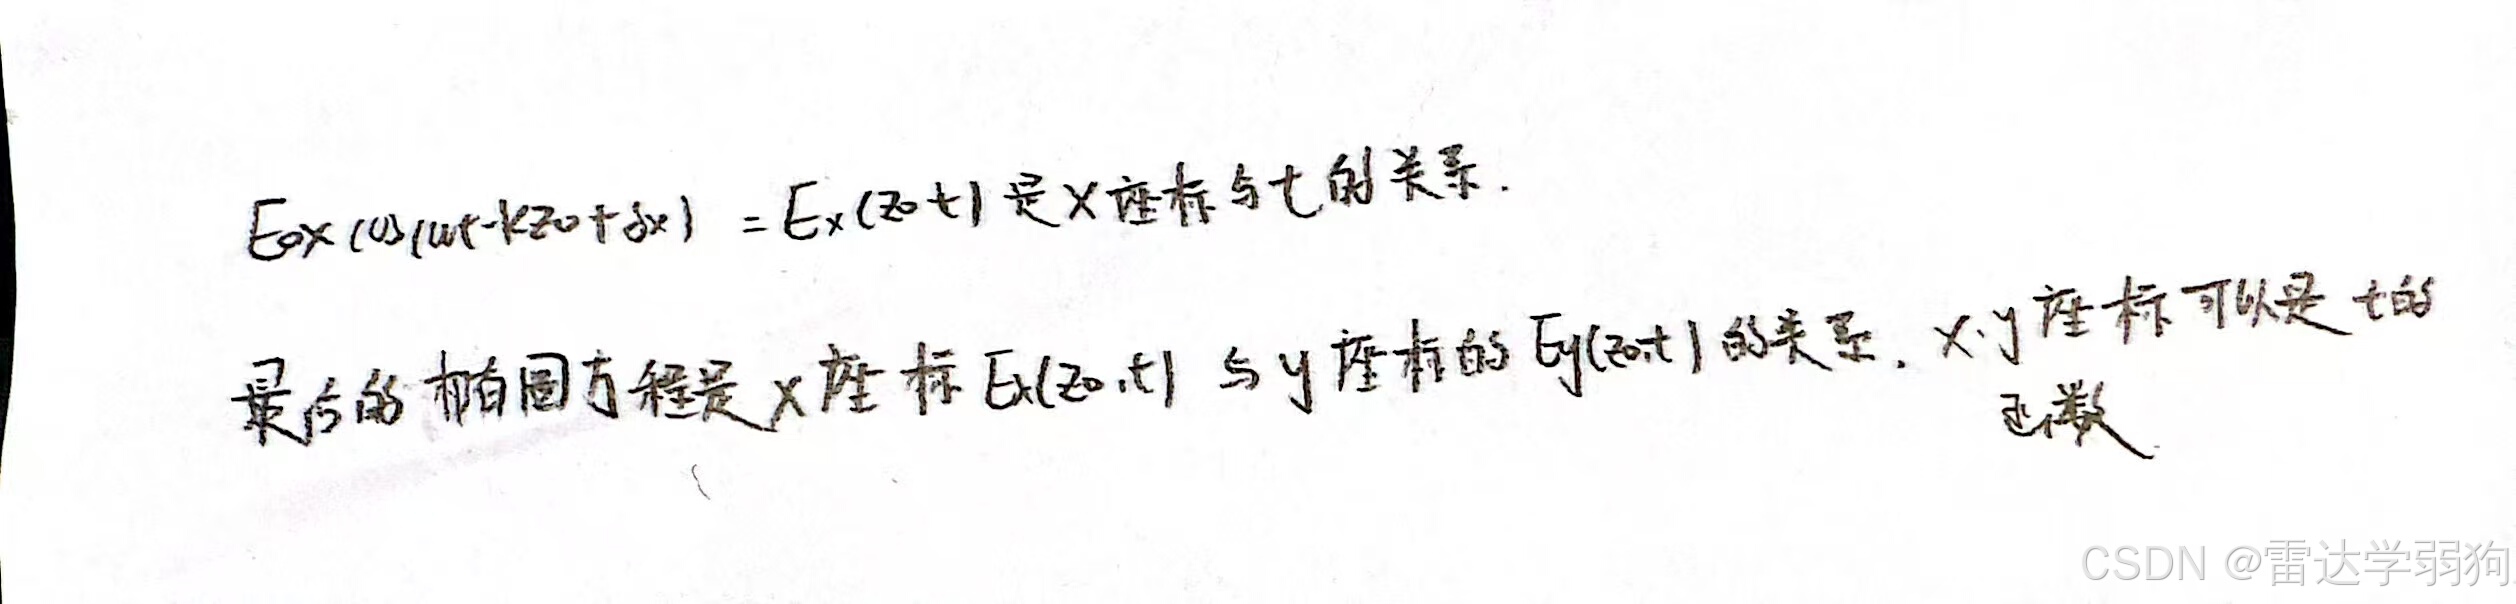 E₀x cos(wt-kz₀+δx) = Ex(z₀,t) 是 X 座标与 t 的关系.
最后的椭圆方程是 x 座标 Ex(z₀,t) 与 y 座标的 Ey(z₀,t) 的关系. x.y 座标可以是 t 的
函数
CSDN @雷达学弱狗